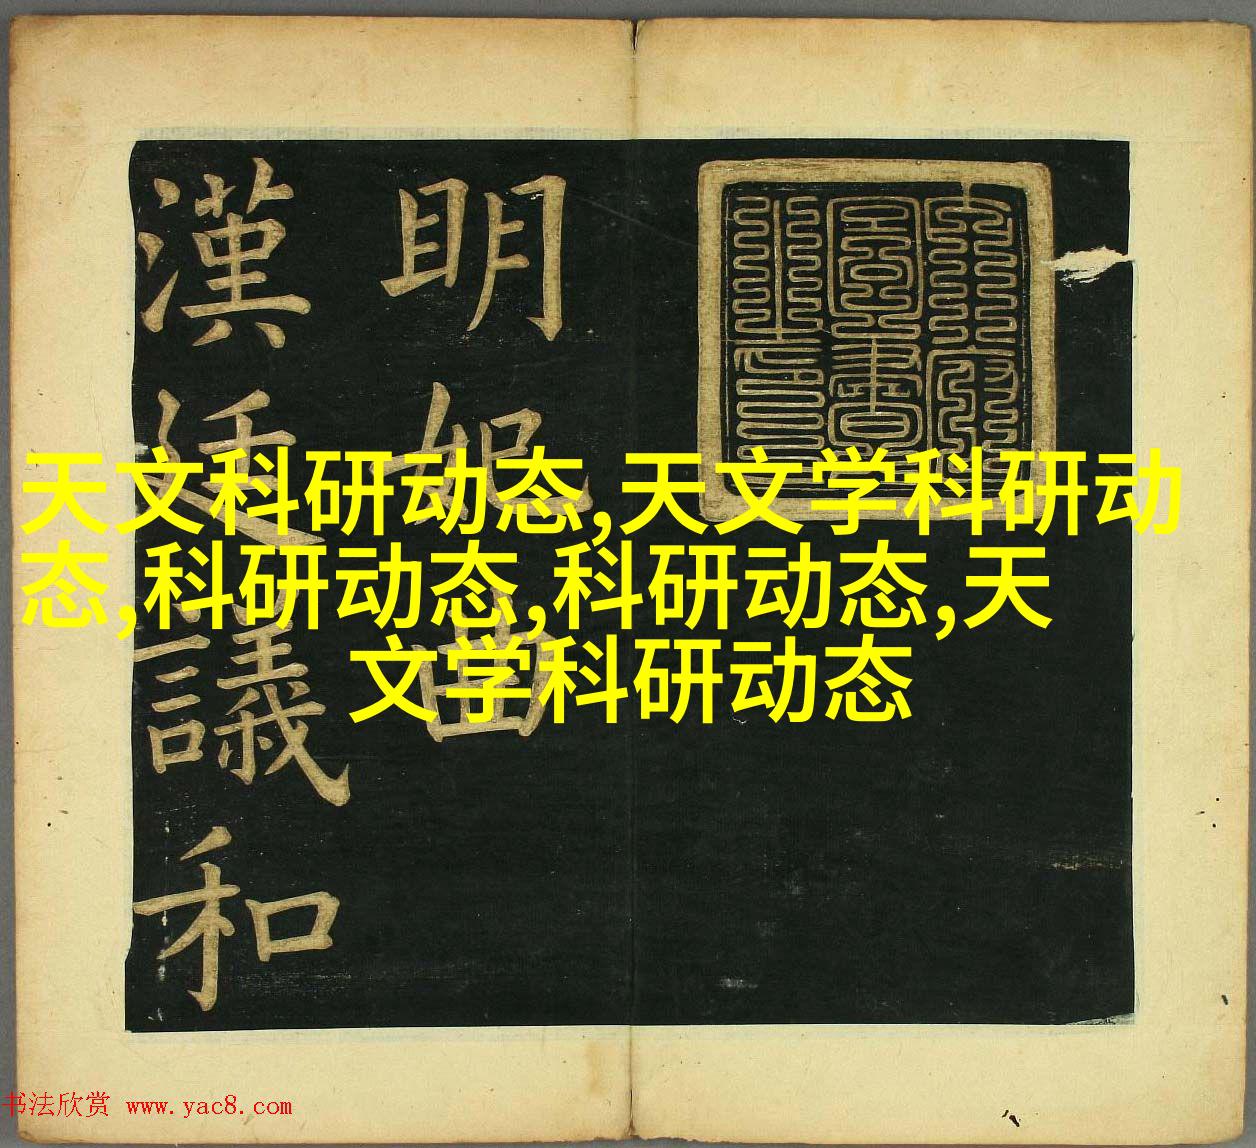 天文科研动态,天文学科研动
态,科研动态,科研动态,天
文学科研动态
明妃曲
漢廷議和
书法欣赏 www.yac8.com